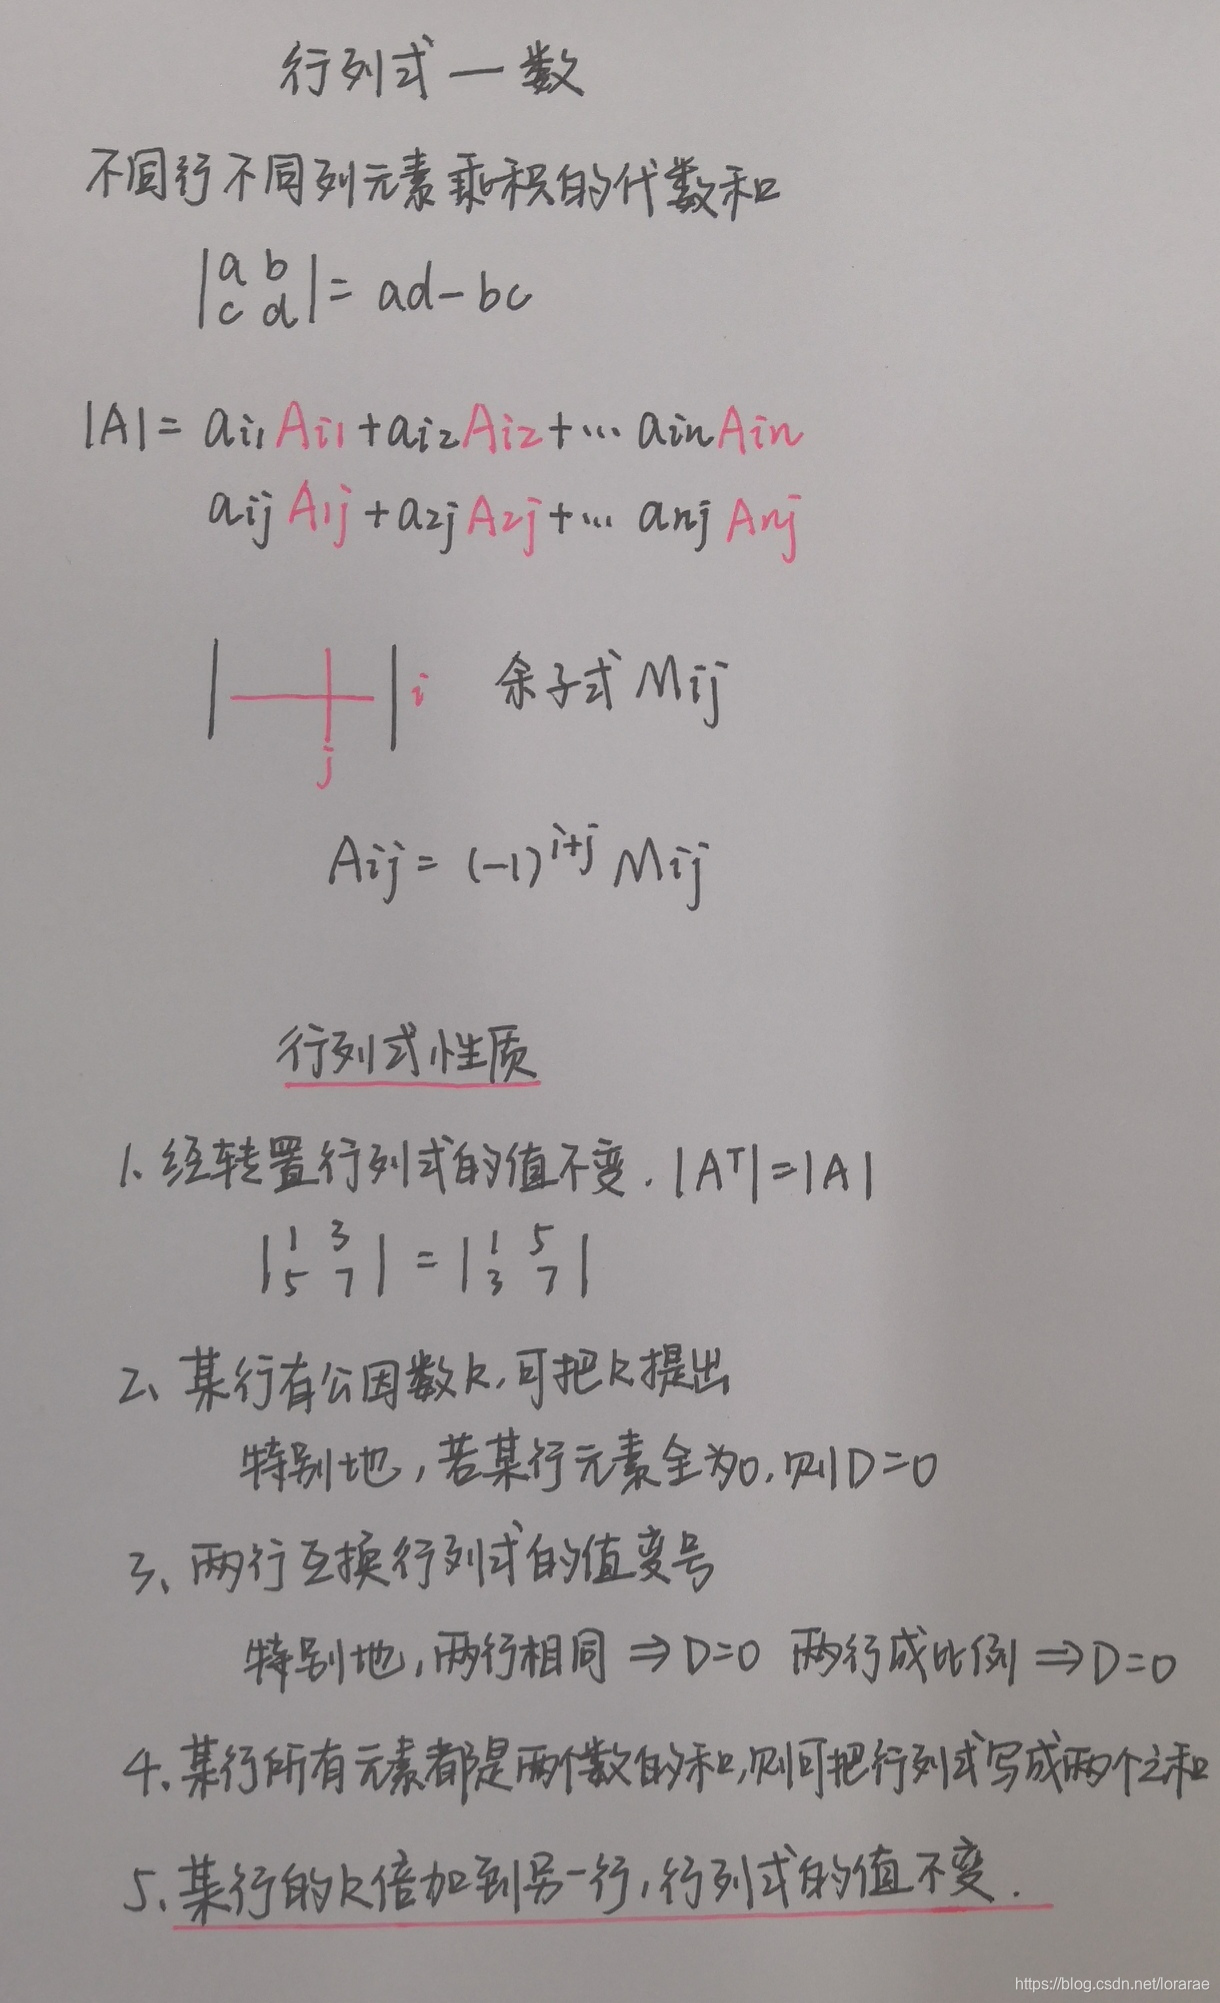 行列式一数
不同行不同列元素乘积的代数和
|a b| = ad-bc
|c d|
|A| = ai1Ai1+ai2Ai2+… ainAin
aijA1j+a2jA2j+… anjAnj
i 余子式 Mij
j
Aij = (-1)^i+j Mij
行列式性质
1. 经转置行列式的值不变. |A^T|=|A|
|1 3| = |1 5|
|5 7| |3 7|
2、某行有公因数k,可把k提出
特别地,若某行元素全为0,则D=0
3、两行互换行列式的值变号
特别地,两行相同 ⇒D=0 两行成比例 ⇒D=0
4、某行所有元素都是两个数的和,则可把行列式写成两个之和
5、某行的k倍加到另一行,行列式的值不变.
https://blog.csdn.net/lorarae